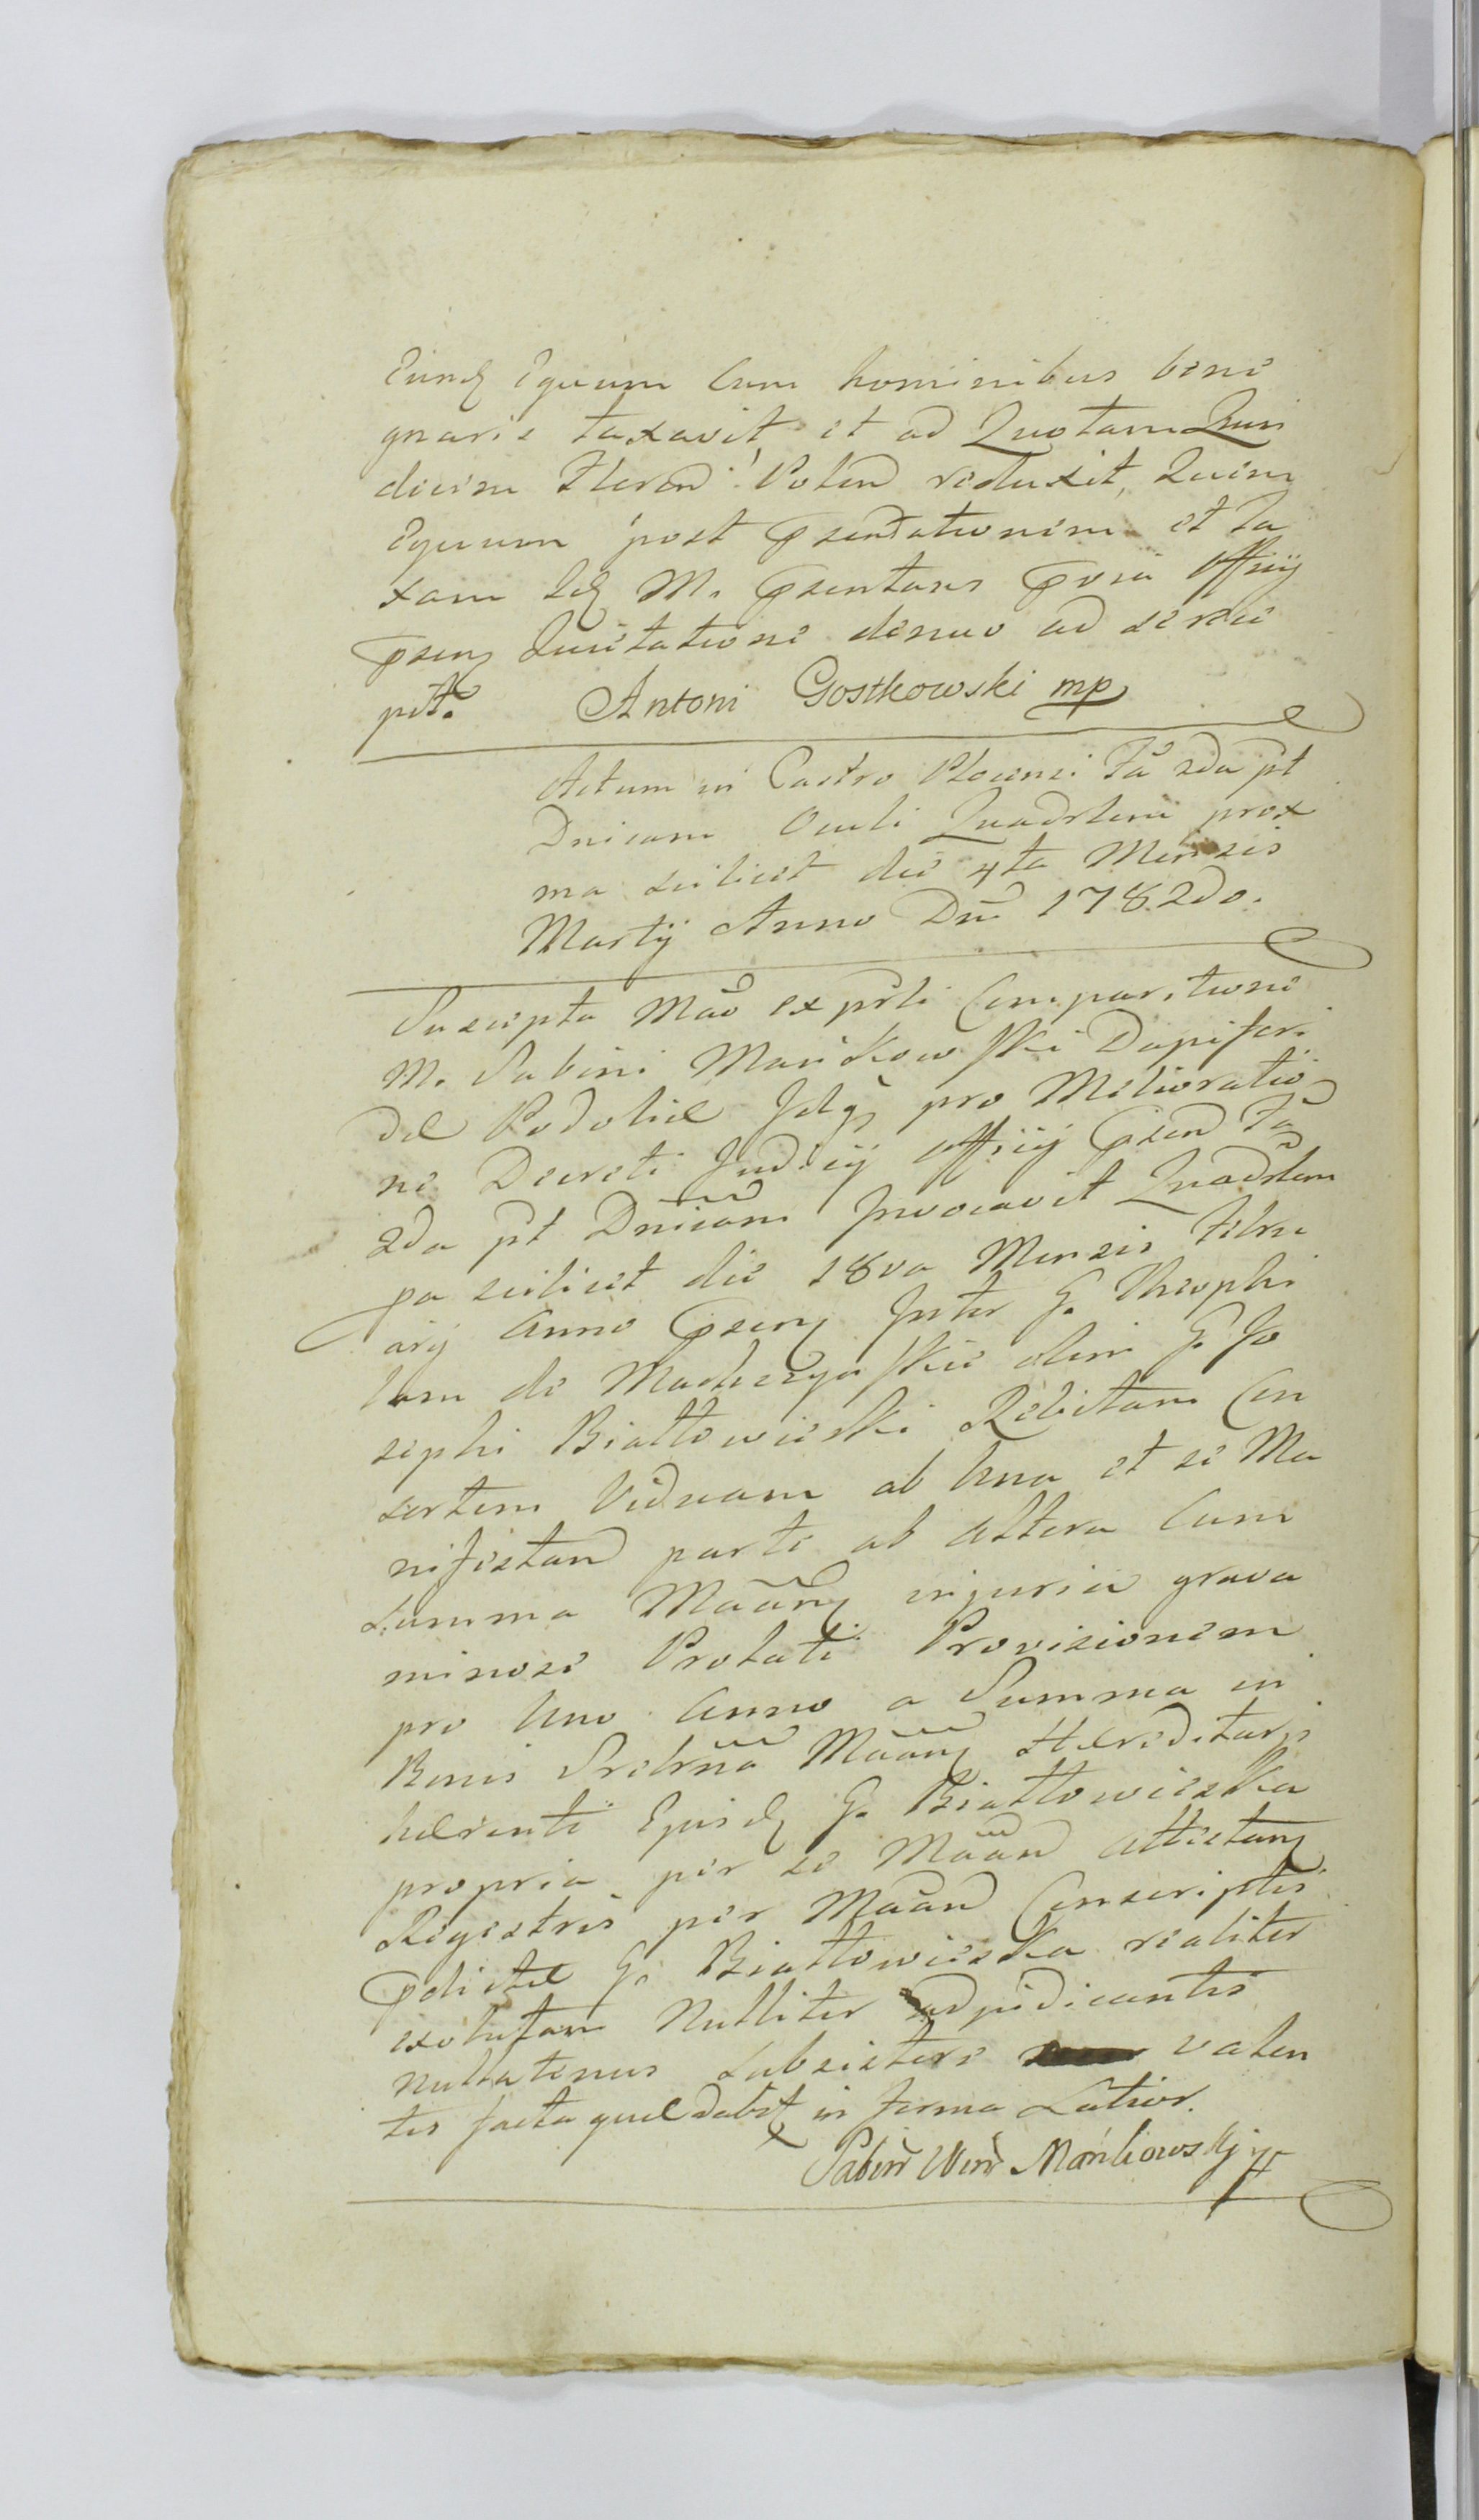 Eund Equum Cum hominibus bene
gnaris taxavit, et ad Quotam Quin
decim Floren: Polon reduxit, Quem
Equum post psentationem et ta
xam Id M. psentans psñi Officij
psen Quietatione denuo ad se rece
pit. Antoni Gostkowski mp
Actum in Castro Plocensi Fã 2da pt
Dnicam Oculi Quadrlem prox
ma scilicet die 4ta Mensis
Martij Anno Dñi 1782do.
Suscepta Mão ex pãrli Comparitione
M. Sabini Mańkowski Dapiferi
de Podolie Idq pro Melioratio
ne Decreti Judicij Officij psen Fã
2da pt Dnicam Invocavit Quadrlem
pa scilicet die 18va Mensis Febru
arij Anno psen Inter G. Theophi
lam de Madrzeja skie olim G. Jo
sephi Białłowieski Relictam Con
sortem Viduam ab Una et se Ma
nifestan parte ab altera Cum
summa Mããn injuria grava
minose Prolati Provisionem
pro Uno Anno a Summa in
Bonis Srebrna Mããn Hereditarys
herenti Ejusd G. Białłowieska
propria per se Mããn attestan
Regestris per Mããn Conscriptis
pdictæ G. Białłowieska realiter
exolutam Nulliter adjudicantis
nullatenus subsistere valen
tis facta quæ dabit in forma Latior.
Sabin Win Mańkowskj